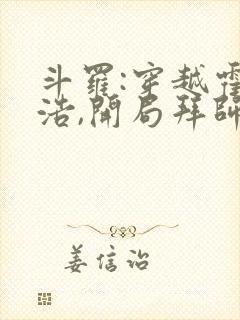 斗羅:穿越霍
浩,開局拜師
姜信治